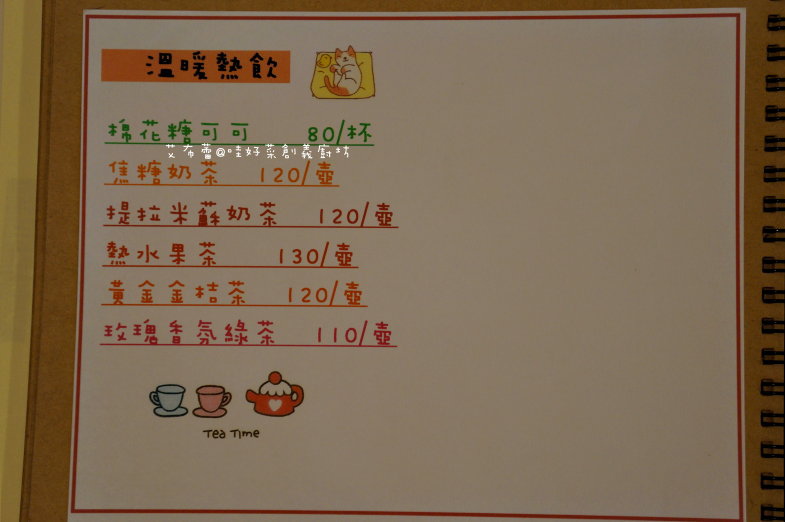 溫暖熱飲
棉花糖可可 80/杯
艾布蕾@哇好菜創義廚坊
焦糖奶茶 120/壺
提拉米蘇奶茶 120/壺
熱水果茶 130/壺
黃金金桔茶 120/壺
玫瑰香氛綠茶 110/壺
Tea Time